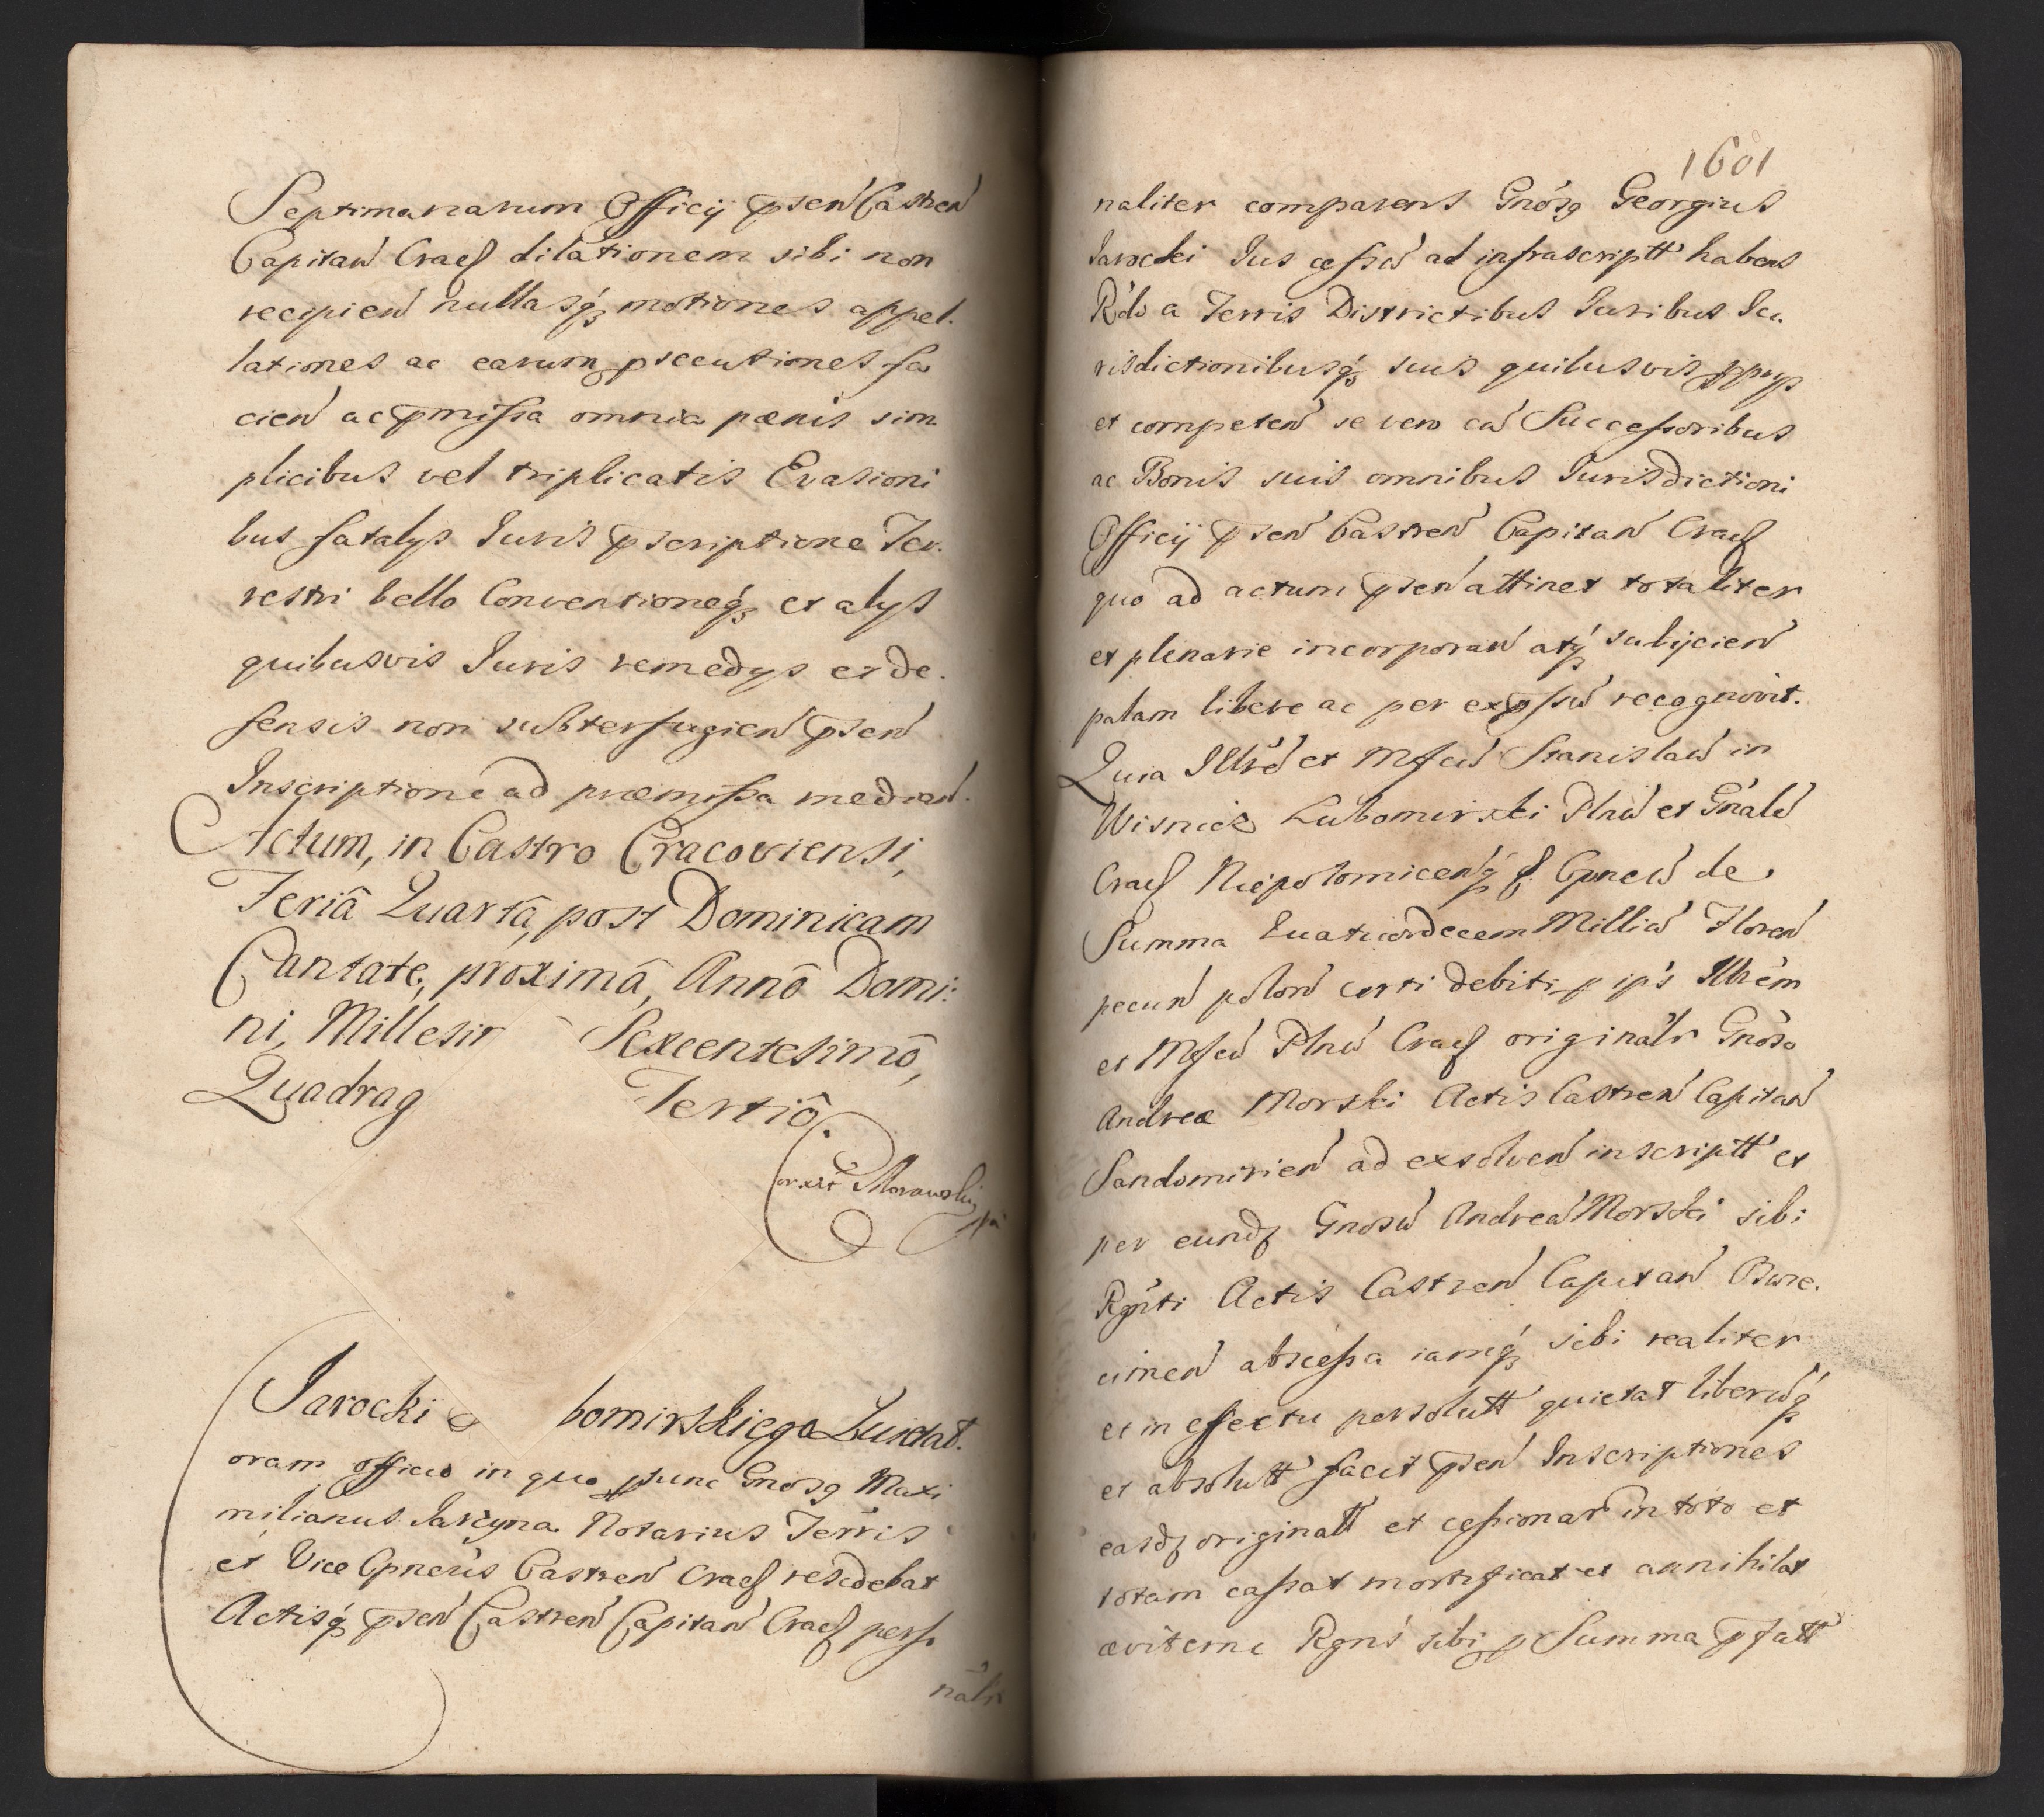 Septimanarum Officij pſen Castren
Capitan Cracſ dilationem sibi non
recipien nullasq; motiones appel-
lationes ac earum psecutiones fa
cien ac pmißa omnia pœnis sim
plicibus vel triplicatis Evasioni
bus fatalijs Iuris pscriptione Ter-
restri bello Conventioneq; et alijs
quibusvis Iuris remedijs et de-
fensis non subterfugien psen
Inscriptione ad præmißa median.
Actum, in Castro Cracoviensi,
Feriâ Quartâ, post Dominicam
Cantate, proximâ, Annô Domi:
ni, Millesi Sexcentesimô,
Quadrag Tertiô.
Morawski
Jarocki bomirskiego Quietat.
oram officio in quo ptunc Gnosq Maxi
milianus Jarzyna Notarius Terris
et Vice Gpneris Castren Cracſ residebat
Actisq; psen Castren Capitan Cracſ perſo
nalr
1601
naliter comparens Gnosq Georgius
Jarocki Ius ceßiu ad infrascriptt habens
Rdo a Terris Districtibus Iuribus Iu-
risdictionibusq; suis quibusvis pprijs
et competen se vero cu Succeßoribus
ac Bonis suis omnibus Iurisdictioni
Officij psen Castren Capitan Cracſ
quo ad actum psen attinet totaliter
et plenarie incorporan atq; subijcien
palam libere ac per expßu recognovit.
Quia Illre et Mfcu Stanislau in
Wisnicz Lubomirski Plnu et Gnale
Cracſ Niepolomicenq; ſ Gpneu de
Summa Quatuordecem Milliu Floren
pecun polon certi debiti p ips Illrem
et Mfcu Plnu Cracſ originalr Gnoso
Andreæ Morski Actis Castren Capitan
Sandomirien ad exsolven inscriptt et
per eundz Gnosu Andrea Morski sibi
Rgnti Actis Castren Capitan Biec-
cimen absceßa iamq; sibi realiter
et in effectu persolutt quietat liberuq;
et absolutt facit psen Inscriptiones
easdz originalt et ceßionar in toto et
totam caßat mortificat et annihilat
æviterne Rgns sibi p Summa pfatt